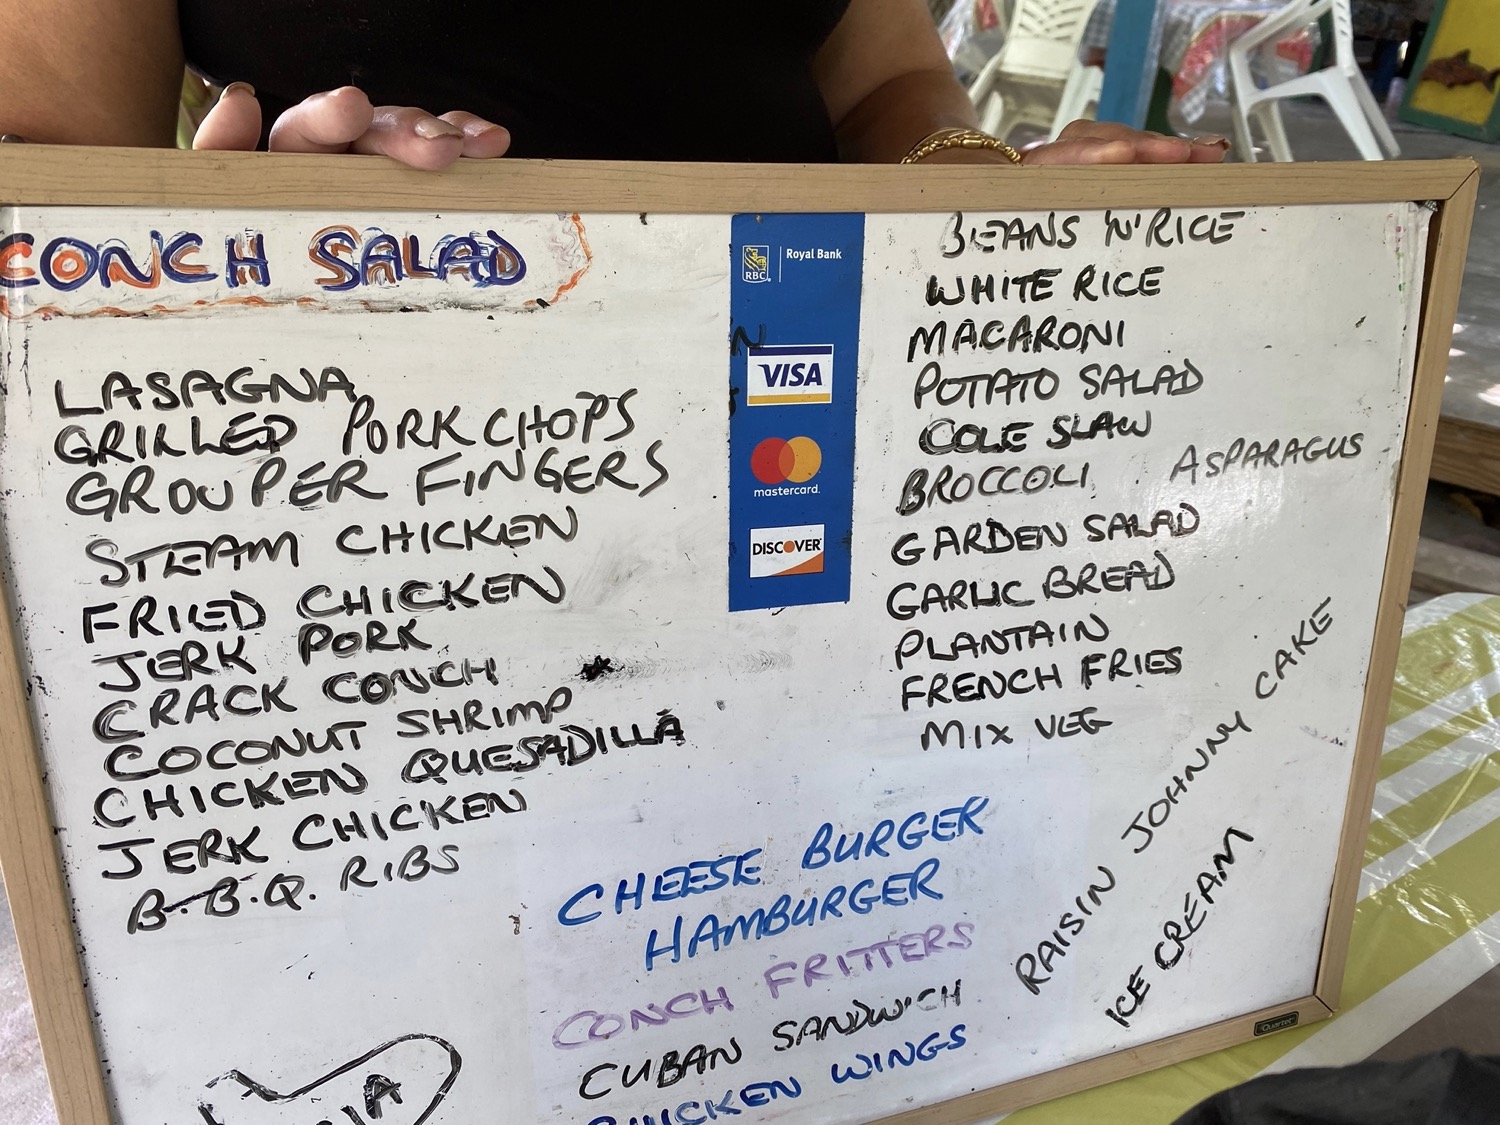 CONCH SALAD
LASAGNA
GRILLED PORK CHOPS
GROUPER FINGERS
STEAM CHICKEN
FRIED CHICKEN
JERK PORK
CRACK CONCH
COCONUT SHRIMP
CHICKEN QUESADILLA
JERK CHICKEN
B.B.Q. RIBS
RBC
Royal Bank
N
VISA
mastercard.
DISCOVER
BEANS 'N' RICE
WHITE RICE
MACARONI
POTATO SALAD
COLE SLAW
BROCCOLI ASPARAGUS
GARDEN SALAD
GARLIC BREAD
PLANTAIN
FRENCH FRIES
MIX VEG
CHEESE BURGER
HAMBURGER
CONCH FRITTERS
CUBAN SANDWICH
CHICKEN WINGS
RAISIN JOHNNY CAKE
ICE CREAM
Quartet